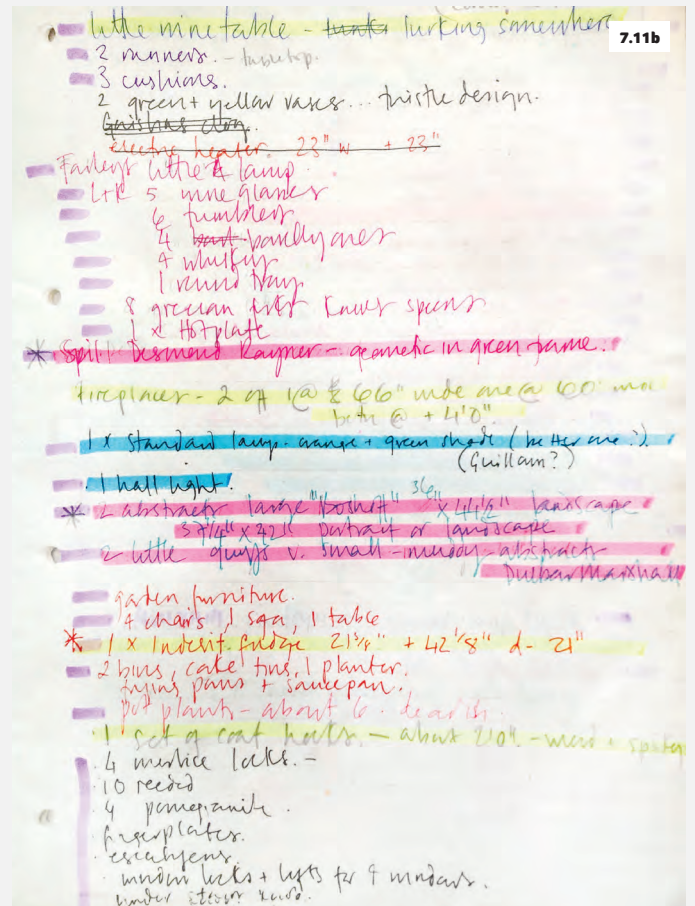 7.11b
little wine table - lurking somewhere
2 runners. - tabletop.
3 cushions.
2 green + yellow vases... thistle design.
electric heater. 23" w + 23"
little lamp
L+K 5 wine glasses
6 tumblers
4 bandy ones
4 whiskys
1 round tray
8 grecian forks knives spoons
1 x Hotplate
* Spill! Desmond Rayner - geometic in green frame.
fireplaces - 2 off 1 @ 66" wide one @ 60"
both @ + 4'0"
1 x standard lamp. orange + green shade (better one?)
(Guillam?)
1 hall light.
* 2 abstracts large 36" x 44½" landscape
37¼" x 42" portrait or landscape
2 little guys v. small - muddy - abstracts
Dunbar Marshall
garden furniture.
4 chairs, 1 sofa, 1 table
* 1 x Indesit. fridge 21⅛" + 42⅛" d - 21"
2 bins, cake tins, 1 planter.
frying pans + saucepan.
pot plants - about 6. deadish.
1 set of coat hooks. - about 2'0"
4 mortice locks. -
10 reeded
4 pomegranite.
fingerplates.
window locks + lifts for 9 windows.
under